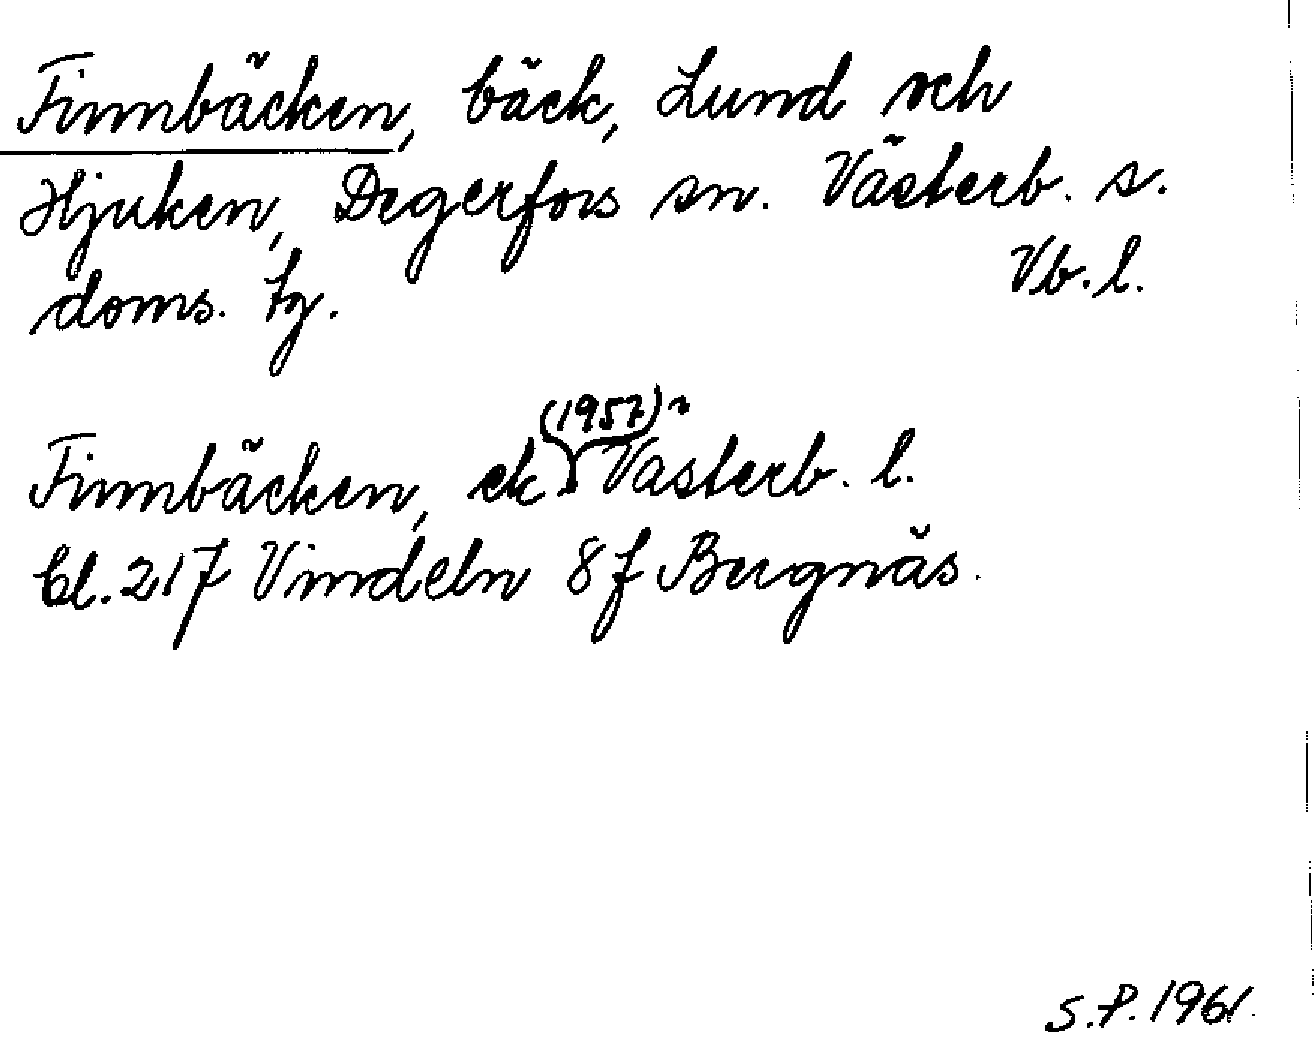 Finnbäcken, bäck, Lund och
Hjuken, Degerfors sn. Västerb. s.
doms. tg. Vb. l.
Finnbäcken, ek (1957) Västerb. l.
bl. 217 Vindeln 8f Burgnäs.
S.P. 1961.